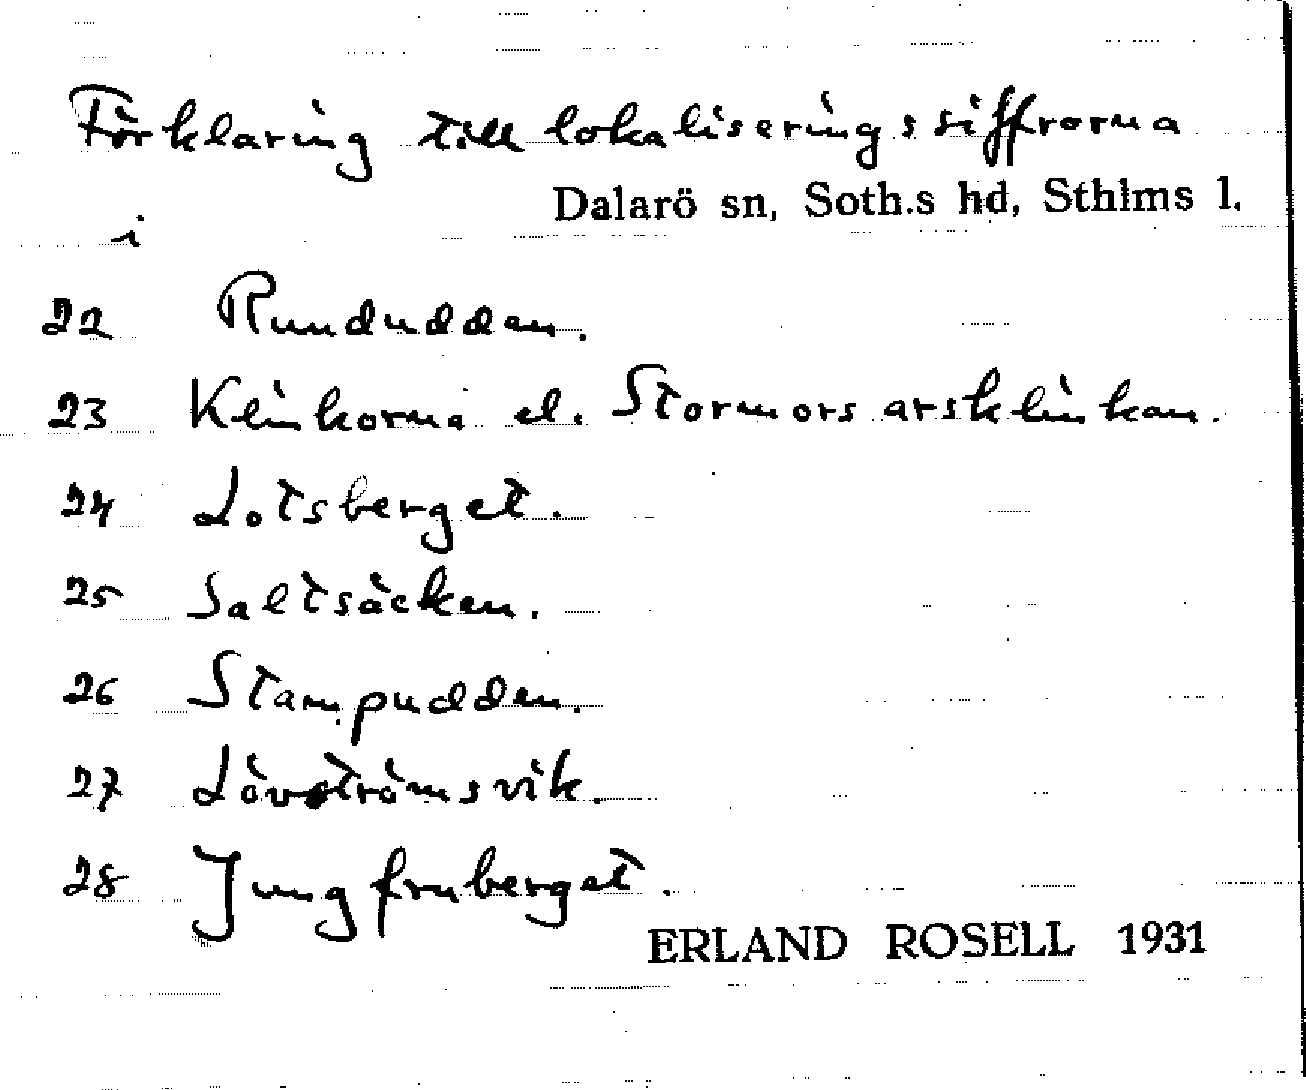 Förklaring till lokaliseringssiffrorna
Dalarö sn, Soth.s hd, Sthlms l.
i
22 Rundudden.
23 Klinkorna el. Stormorsarsklinkan.
24 Lotsberget.
25 Saltsäcken.
26 Stampudden.
27 Lövströmsvik.
28 Jungfruberget.
ERLAND ROSELL 1931